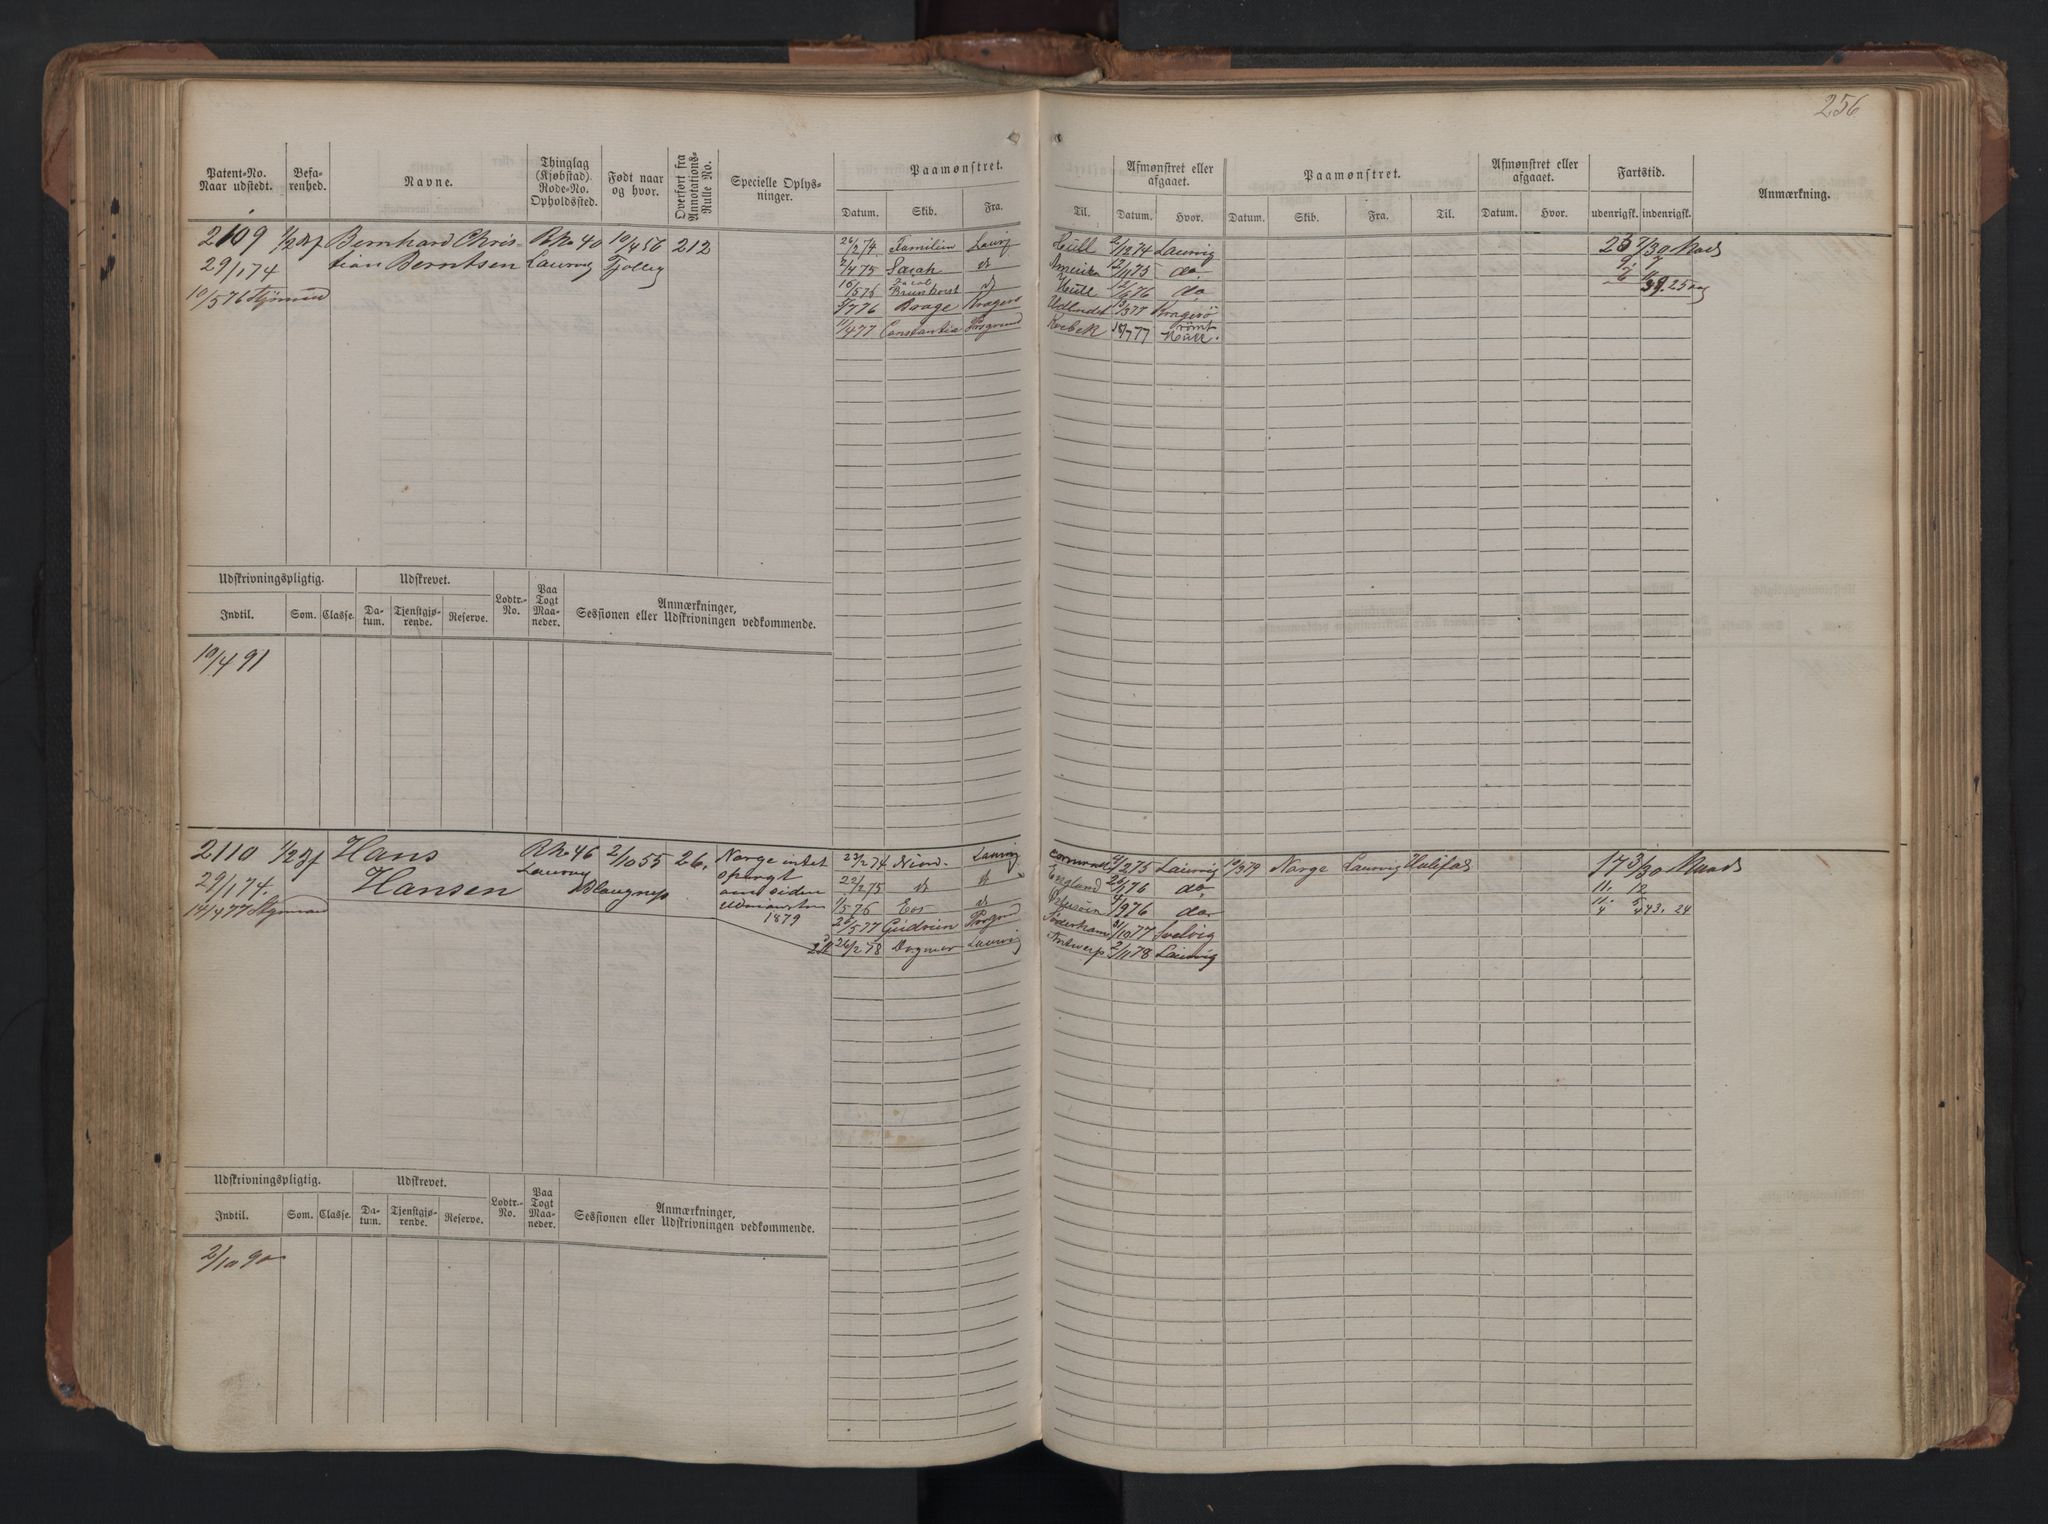 256
Patent-No. Naar udstedt. Befarenhed. Navne. Thinglag (Kjøbstad). Rode-No. Opholdssted. Født naar og hvor. Overført fra Annotations-Rulle No. Specielle Oplysninger. Paamønstret. Datum. Skib. Fra.
Til. Afmønstret eller afgaaet. Datum. Hvor. Paamønstret. Datum. Skib. Fra. Til. Afmønstret eller afgaaet. Datum. Hvor. Fartstid. udenrigsk. indenrigsk. Anmærkning.
2109 1/2 Bernhard Chris- R No 40 10/4 56 212 26/2 74. Familien Laurvig Hull 2/12 74 Laurvig 23 7/30 Maad
29/1 74 tian Berntsen Laurvig Tjølling 2/4 75 Sarah Amerika 12/11 75 do 9. 7
10/5 76 Styrmand 16/5 76 Jacob Brunhorst Hull 12/6 76 do
7 76 Brage Kragerø Udlandet 13/3 77 Kragerø
11/4 77. Constantia Porsgrund Kvebek 18/7 77 rømt Hull.
Udskrivningspligtig. Udskrevet. Lodtr.-No. Paa Togt Maaneder. Anmærkninger, Sessionen eller Udskrivningen vedkommende.
Indtil. Som. Classe. Datum. Tjenstgjørende. Reserve.
10/4 91
2110 1/2 Hans R No 46 2/10 55 26. Norge intet 23/2 74 Laurvig 2/2 75 Laurvig 10/3 79 Norge Laurvig Halifax 17 3/30 Maad
29/1 74. Hansen Laurvig spurgt 22/2 75 England 26/1 76 do 11. 12
14/4 77 Styrmand siden 1/5 76 Eos Østersøen 4/9 76 do 11. 5
1879 25/5 77 Gudrun Porsgrd Söderhamn 31/10 77 Svelvig
26/2 78 Dagmar Laurvig Antwerp 2/11 78 Laurvig
Udskrivningspligtig. Udskrevet. Lodtr.-No. Paa Togt Maaneder. Anmærkninger, Sessionen eller Udskrivningen vedkommende.
Indtil. Som. Classe. Datum. Tjenstgjørende. Reserve.
2/10 90